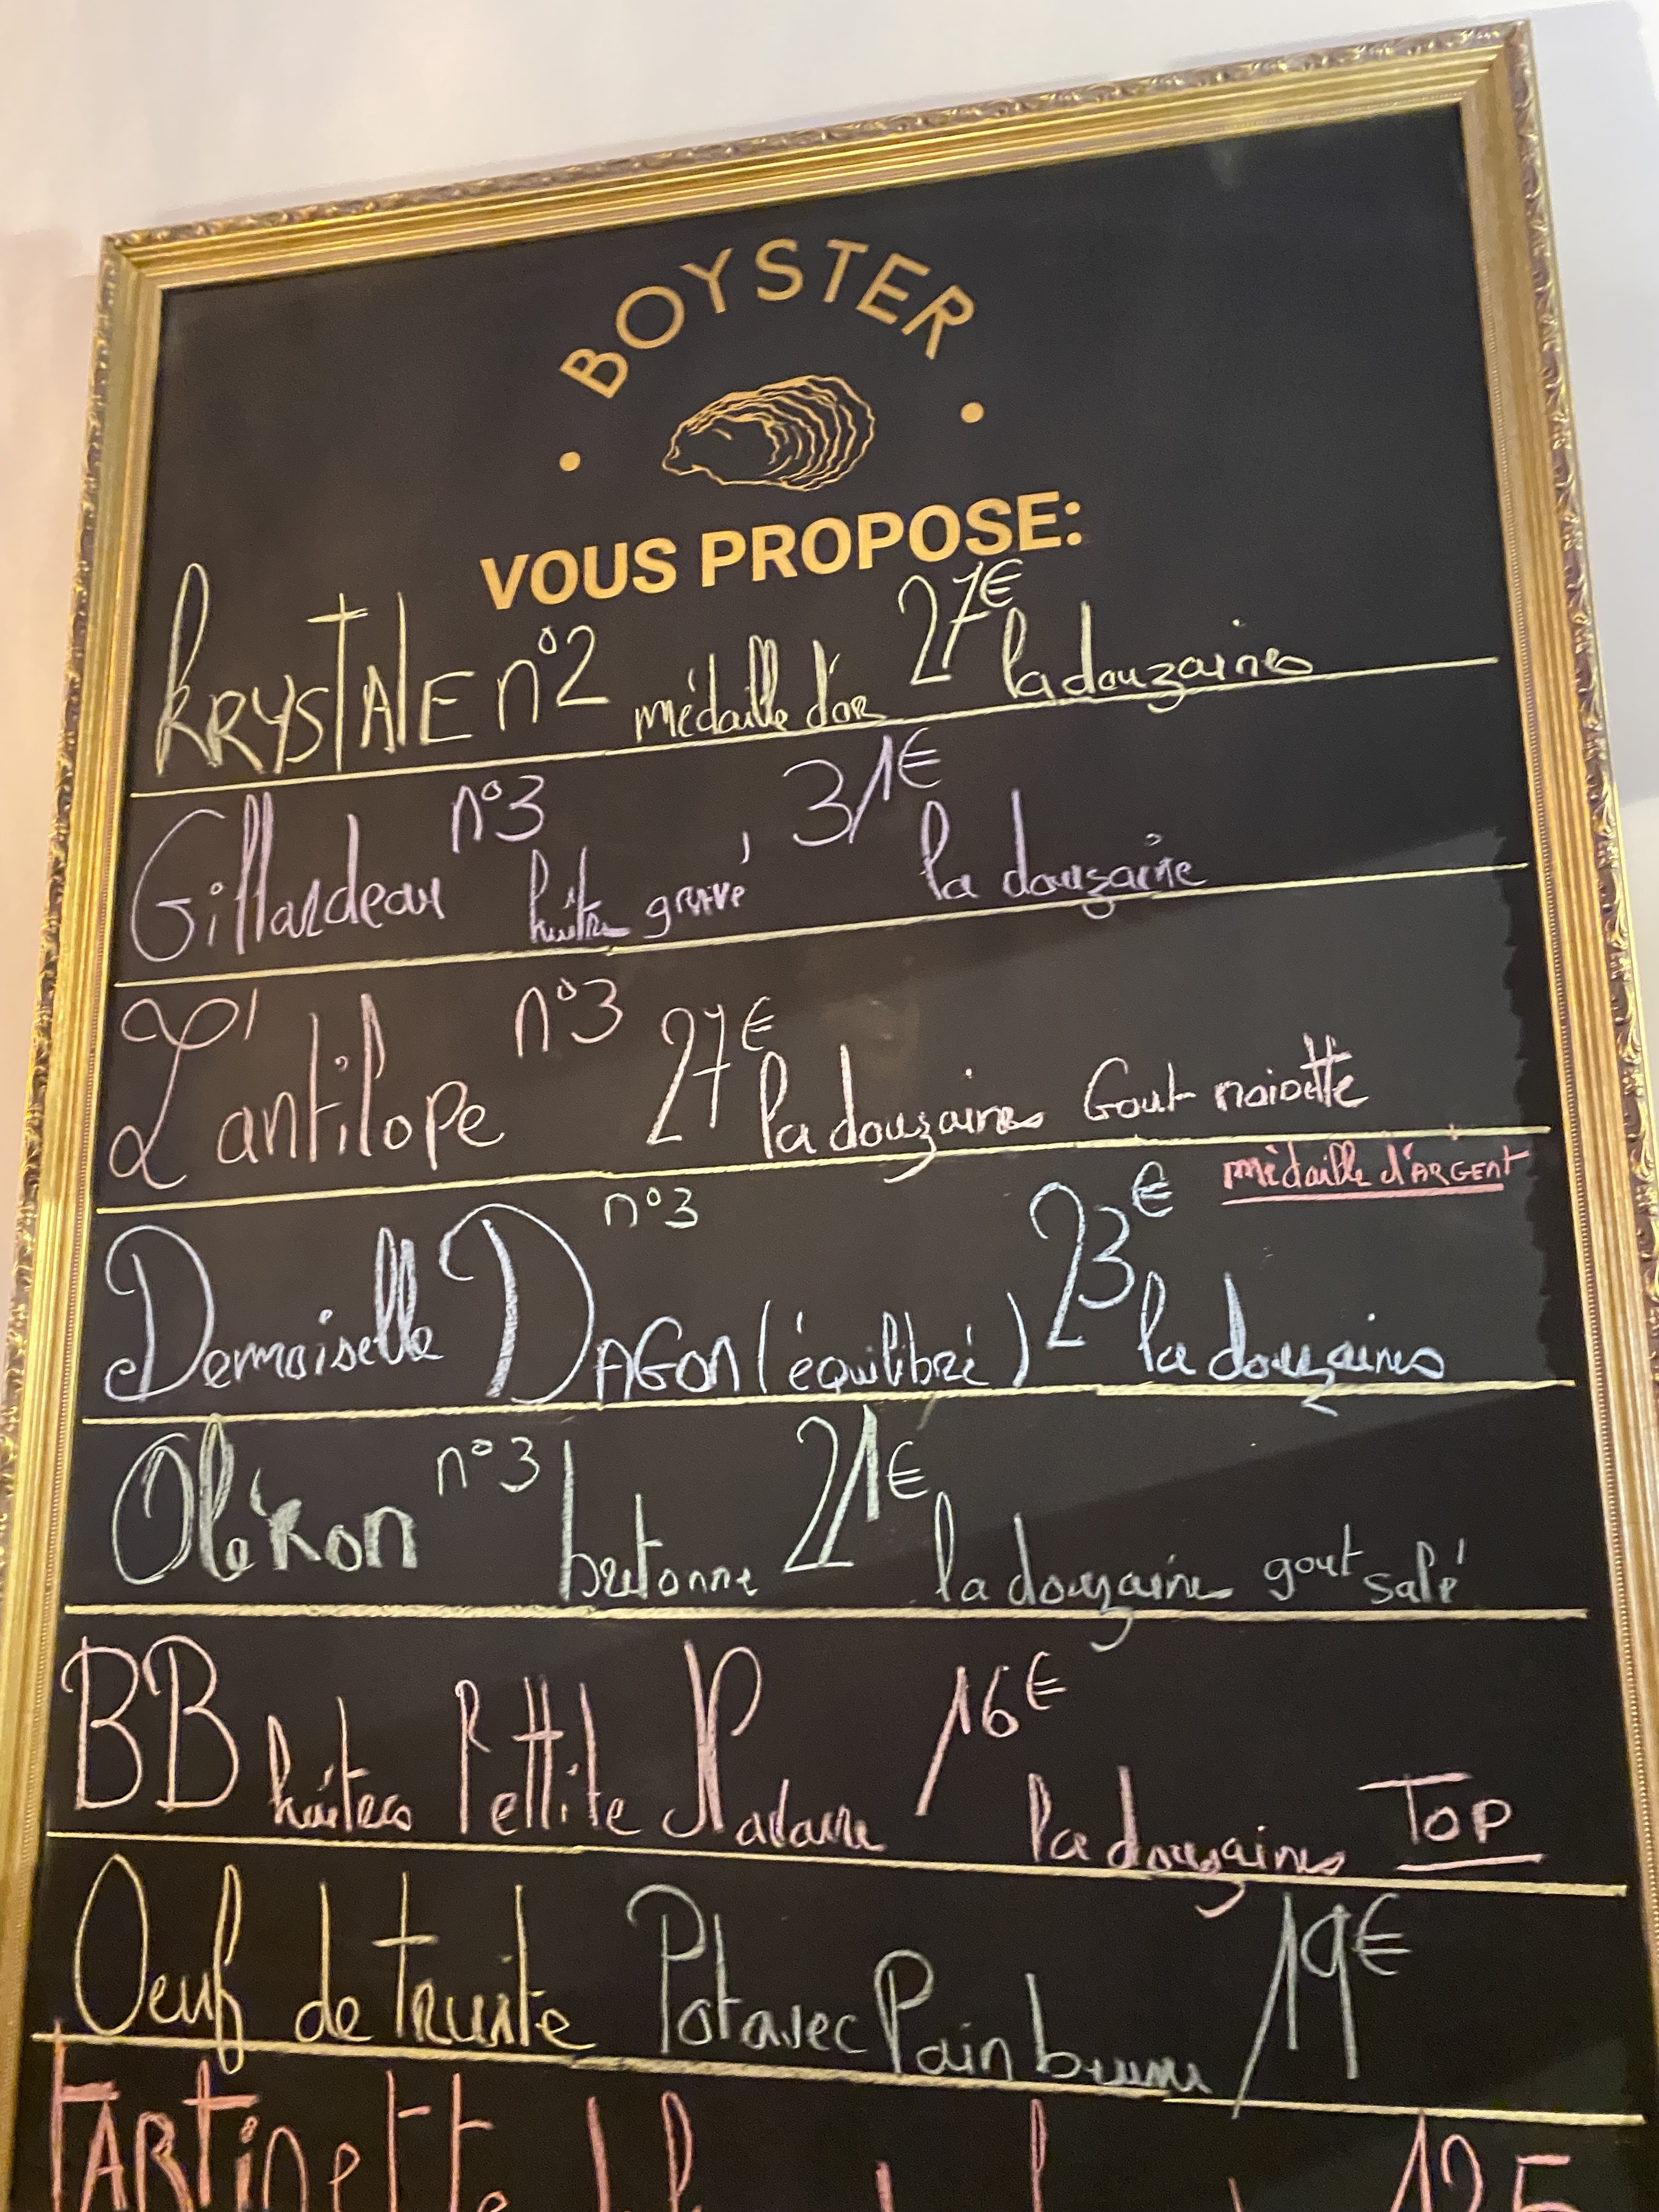 BOYSTER
VOUS PROPOSE:
KRYSTALE n°2 médaille d'or 27€ la douzaines
Gillardeau n°3 huitre gravé, 31€ la douzaine
L'antilope n°3 27€ la douzaines Gout noisette
médaille d'ARGENT
Demoiselle DAGON (équilibré) n°3 23€ la douzaines
Oléron n°3 bretonne 21€ la douzaine gout salé
BB huitres Pettite Nadaure 16€ la douzaines TOP
Oeuf de truite Pot avec Pain brun 19€
TARTINETTE